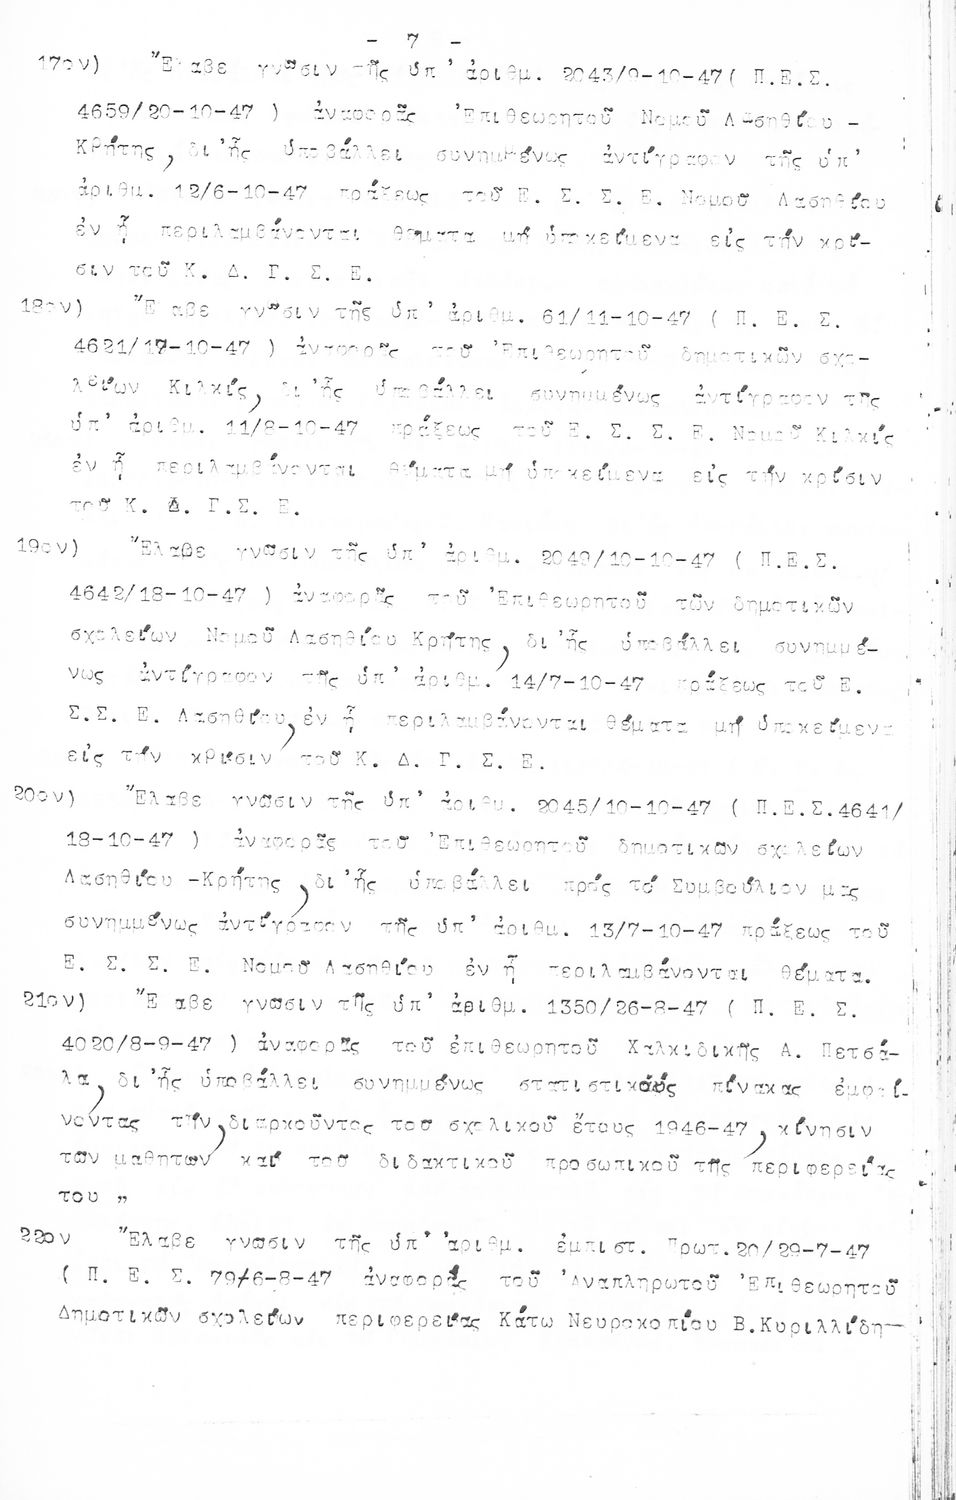 - 7 -
17ον) Ἔλαβε γνῶσιν τῆς ὑπ' ἀριθμ. 2043/9-10-47( Π.Ε.Σ.
4659/20-10-47 ) ἀναφορᾶς Ἐπιθεωρητοῦ Νομοῦ Λασηθίου -
Κρήτης, δι'ἧς ὑποβάλλει συνημμένως ἀντίγραφον τῆς ὑπ'
ἀριθμ. 12/6-10-47 πράξεως τοῦ Ε. Σ. Σ. Ε. Νομοῦ Λασηθίου
ἐν ᾗ περιλαμβάνονται θέματα μή ὑποκείμενα εἰς τήν κρί-
σιν τοῦ Κ. Δ. Γ. Σ. Ε.
18ον) Ἔ αβε γνῶσιν τῆς ὑπ' ἀριθμ. 61/11-10-47 ( Π. Ε. Σ.
4621/17-10-47 ) ἀναφορᾶς τοῦ Ἐπιθεωρητοῦ δημοτικῶν σχο-
λείων Κιλκίς, δι'ἧς ὑποβάλλει συνημμένως ἀντίγραφον τῆς
ὑπ' ἀριθμ. 11/8-10-47 πράξεως τοῦ Ε. Σ. Σ. Ε. Νομοῦ Κιλκίς
ἐν ᾗ περιλαμβάνονται θέματα μή ὑποκείμενα εἰς τήν κρίσιν
τοῦ Κ. Δ. Γ.Σ. Ε.
19ον) Ἔλαβε γνῶσιν τῆς ὑπ' ἀριθμ. 2049/10-10-47 ( Π.Ε.Σ.
4642/18-10-47 ) ἀναφορᾶς τοῦ Ἐπιθεωρητοῦ τῶν δημοτικῶν
σχολείων Νομοῦ Λασηθίου Κρήτης, δι'ἧς ὑποβάλλει συνημμέ-
νως ἀντίγραφον τῆς ὑπ' ἀριθμ. 14/7-10-47 πράξεως τοῦ Ε.
Σ.Σ. Ε. Λασηθίου, ἐν ᾗ περιλαμβάνονται θέματα μή ὑποκείμενα
εἰς τήν κρίσιν τοῦ Κ. Δ. Γ. Σ. Ε.
20ον) Ἔλαβε γνῶσιν τῆς ὑπ' ἀριθμ. 2045/10-10-47 ( Π.Ε.Σ.4641/
18-10-47 ) ἀναφορᾶς τοῦ Ἐπιθεωρητοῦ δημοτικῶν σχολείων
Λασηθίου -Κρήτης , δι'ἧς ὑποβάλλει πρός τό Συμβούλιον μας
συνημμένως ἀντίγραφον τῆς ὑπ' ἀριθμ. 13/7-10-47 πράξεως τοῦ
Ε. Σ. Σ. Ε. Νομοῦ Λασηθίου ἐν ᾗ περιλαμβάνονται θέματα.
21ον) Ἔ αβε γνῶσιν τῆς ὑπ' ἀριθμ. 1350/26-8-47 ( Π. Ε. Σ.
4020/8-9-47 ) ἀναφορᾶς τοῦ ἐπιθεωρητοῦ Χαλκιδικῆς Α. Πετσά-
λα, δι'ἧς ὑποβάλλει συνημμένως στατιστικούς πίνακας ἐμφαί-
νοντας τήν, διαρκοῦντος τοῦ σχολικοῦ ἔτους 1946-47, κίνησιν
τῶν μαθητῶν καί τοῦ διδακτικοῦ προσωπικοῦ τῆς περιφερείας
του „
22ον Ἔλαβε γνῶσιν τῆς ὑπ' ἀριθμ. ἐμπιστ. Πρωτ.20/29-7-47
( Π. Ε. Σ. 79/6-8-47 ἀναφορᾶς τοῦ Ἀναπληρωτοῦ Ἐπιθεωρητοῦ
Δημοτικῶν σχολείων περιφερείας Κάτω Νευροκοπίου Β.Κυριλλίδη—